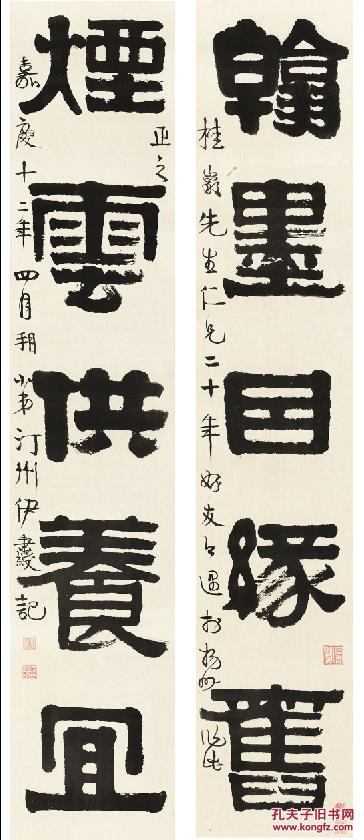 翰墨因緣舊
桂巖先生仁兄二十年好友今遇於揚州
正之
煙雲供養宜
嘉慶十二年四月朔小弟汀州伊秉綬記
孔夫子旧书网
WWW.KONGFZ.COM